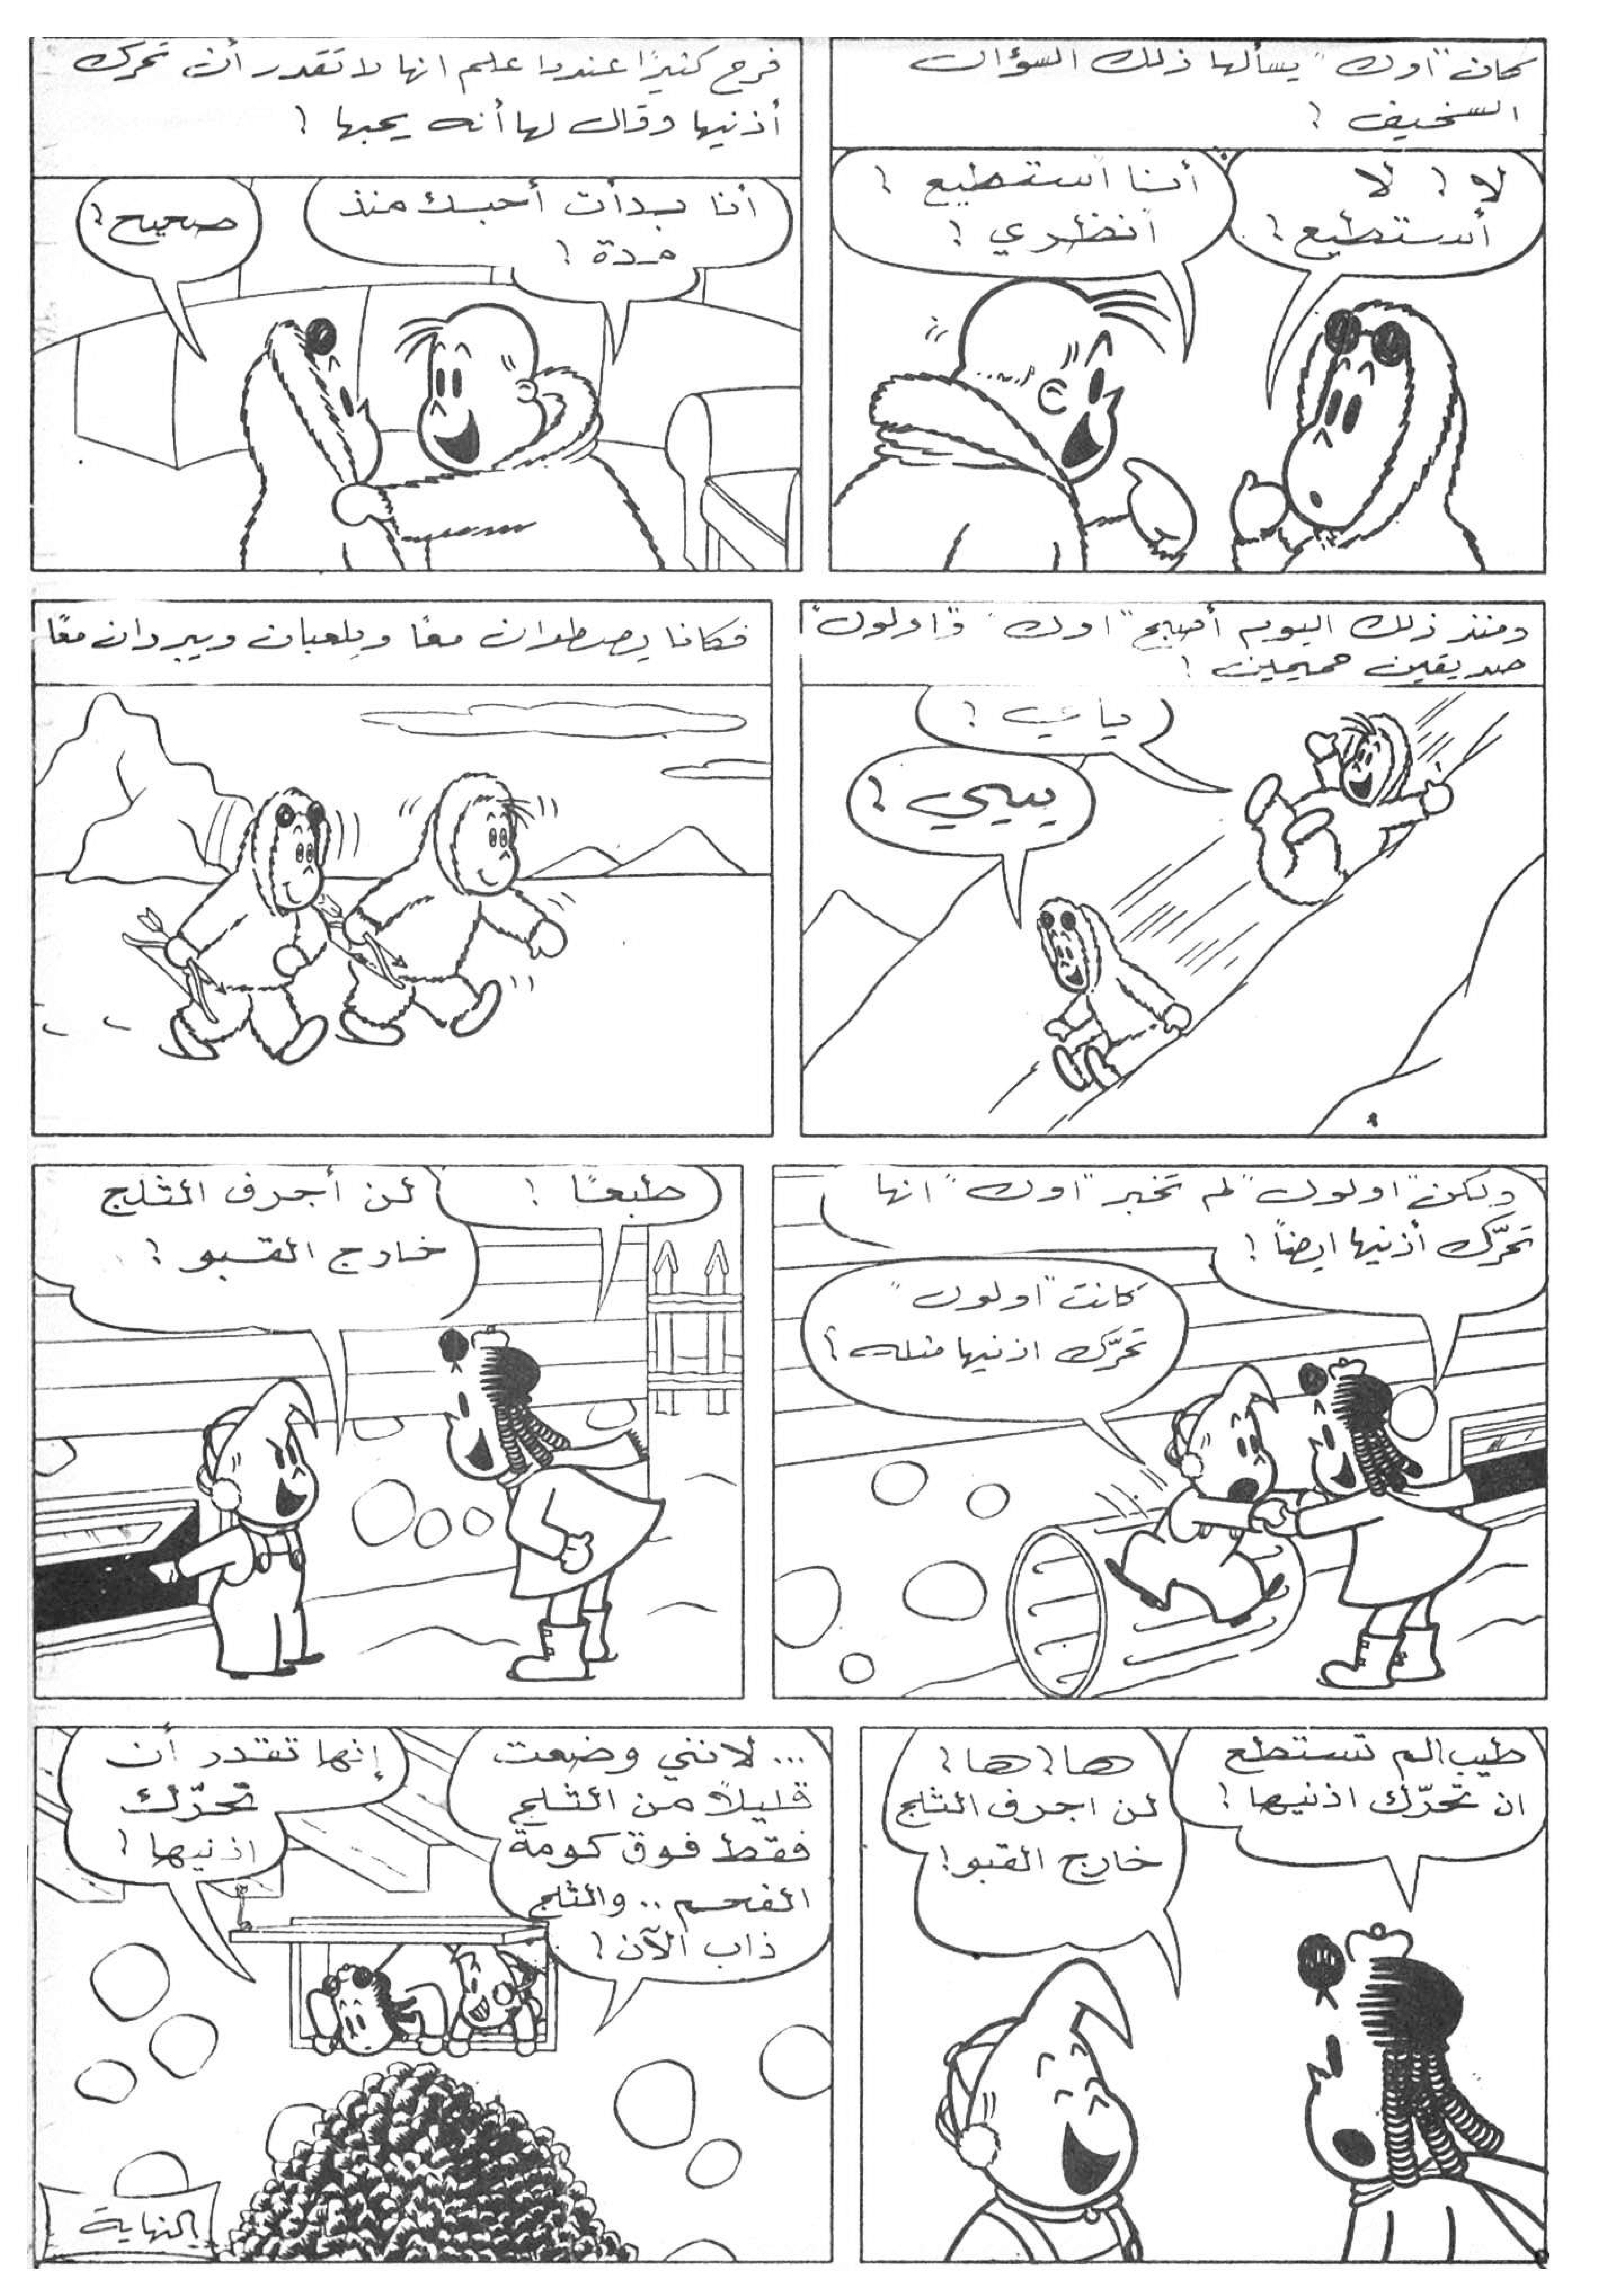 كان "اوك" يسألها ذلك السؤال
السخيف !
لا ! لا
أستطيع !
أنا أستطيع !
أنظري !
فرح كثيرًا عندما علم انها لا تقدر أن تحرك
أذنيها وقال لها أنه يحبها !
أنا بدأت أحبك منذ
مدة !
صحيح ؟
ومنذ ذلك اليوم أصبح "اوك" و"اولون"
صديقين حميمين !
ياي !
ييي !
فكانا يصطدان معًا ويلعبان ويبردان معًا
ولكن "اولون" لم تخبر "اوك" انها
تحرّك أذنيها ايضاً !
كانت "اولون"
تحرّك اذنيها مثله ؟
طبعًا !
لن أجرف الثلج
خارج القبو !
طيب الم تستطع
ان تحرّك اذنيها ؟
ها ! ها !
لن اجرف الثلج
خارج القبو !
... لانني وضعت
قليلاً من الثلج
فقط فوق كومة
الفحم .. والثلج
ذاب الآن !
إنها تقدر أن
تحرّك
اذنيها !
النهاية